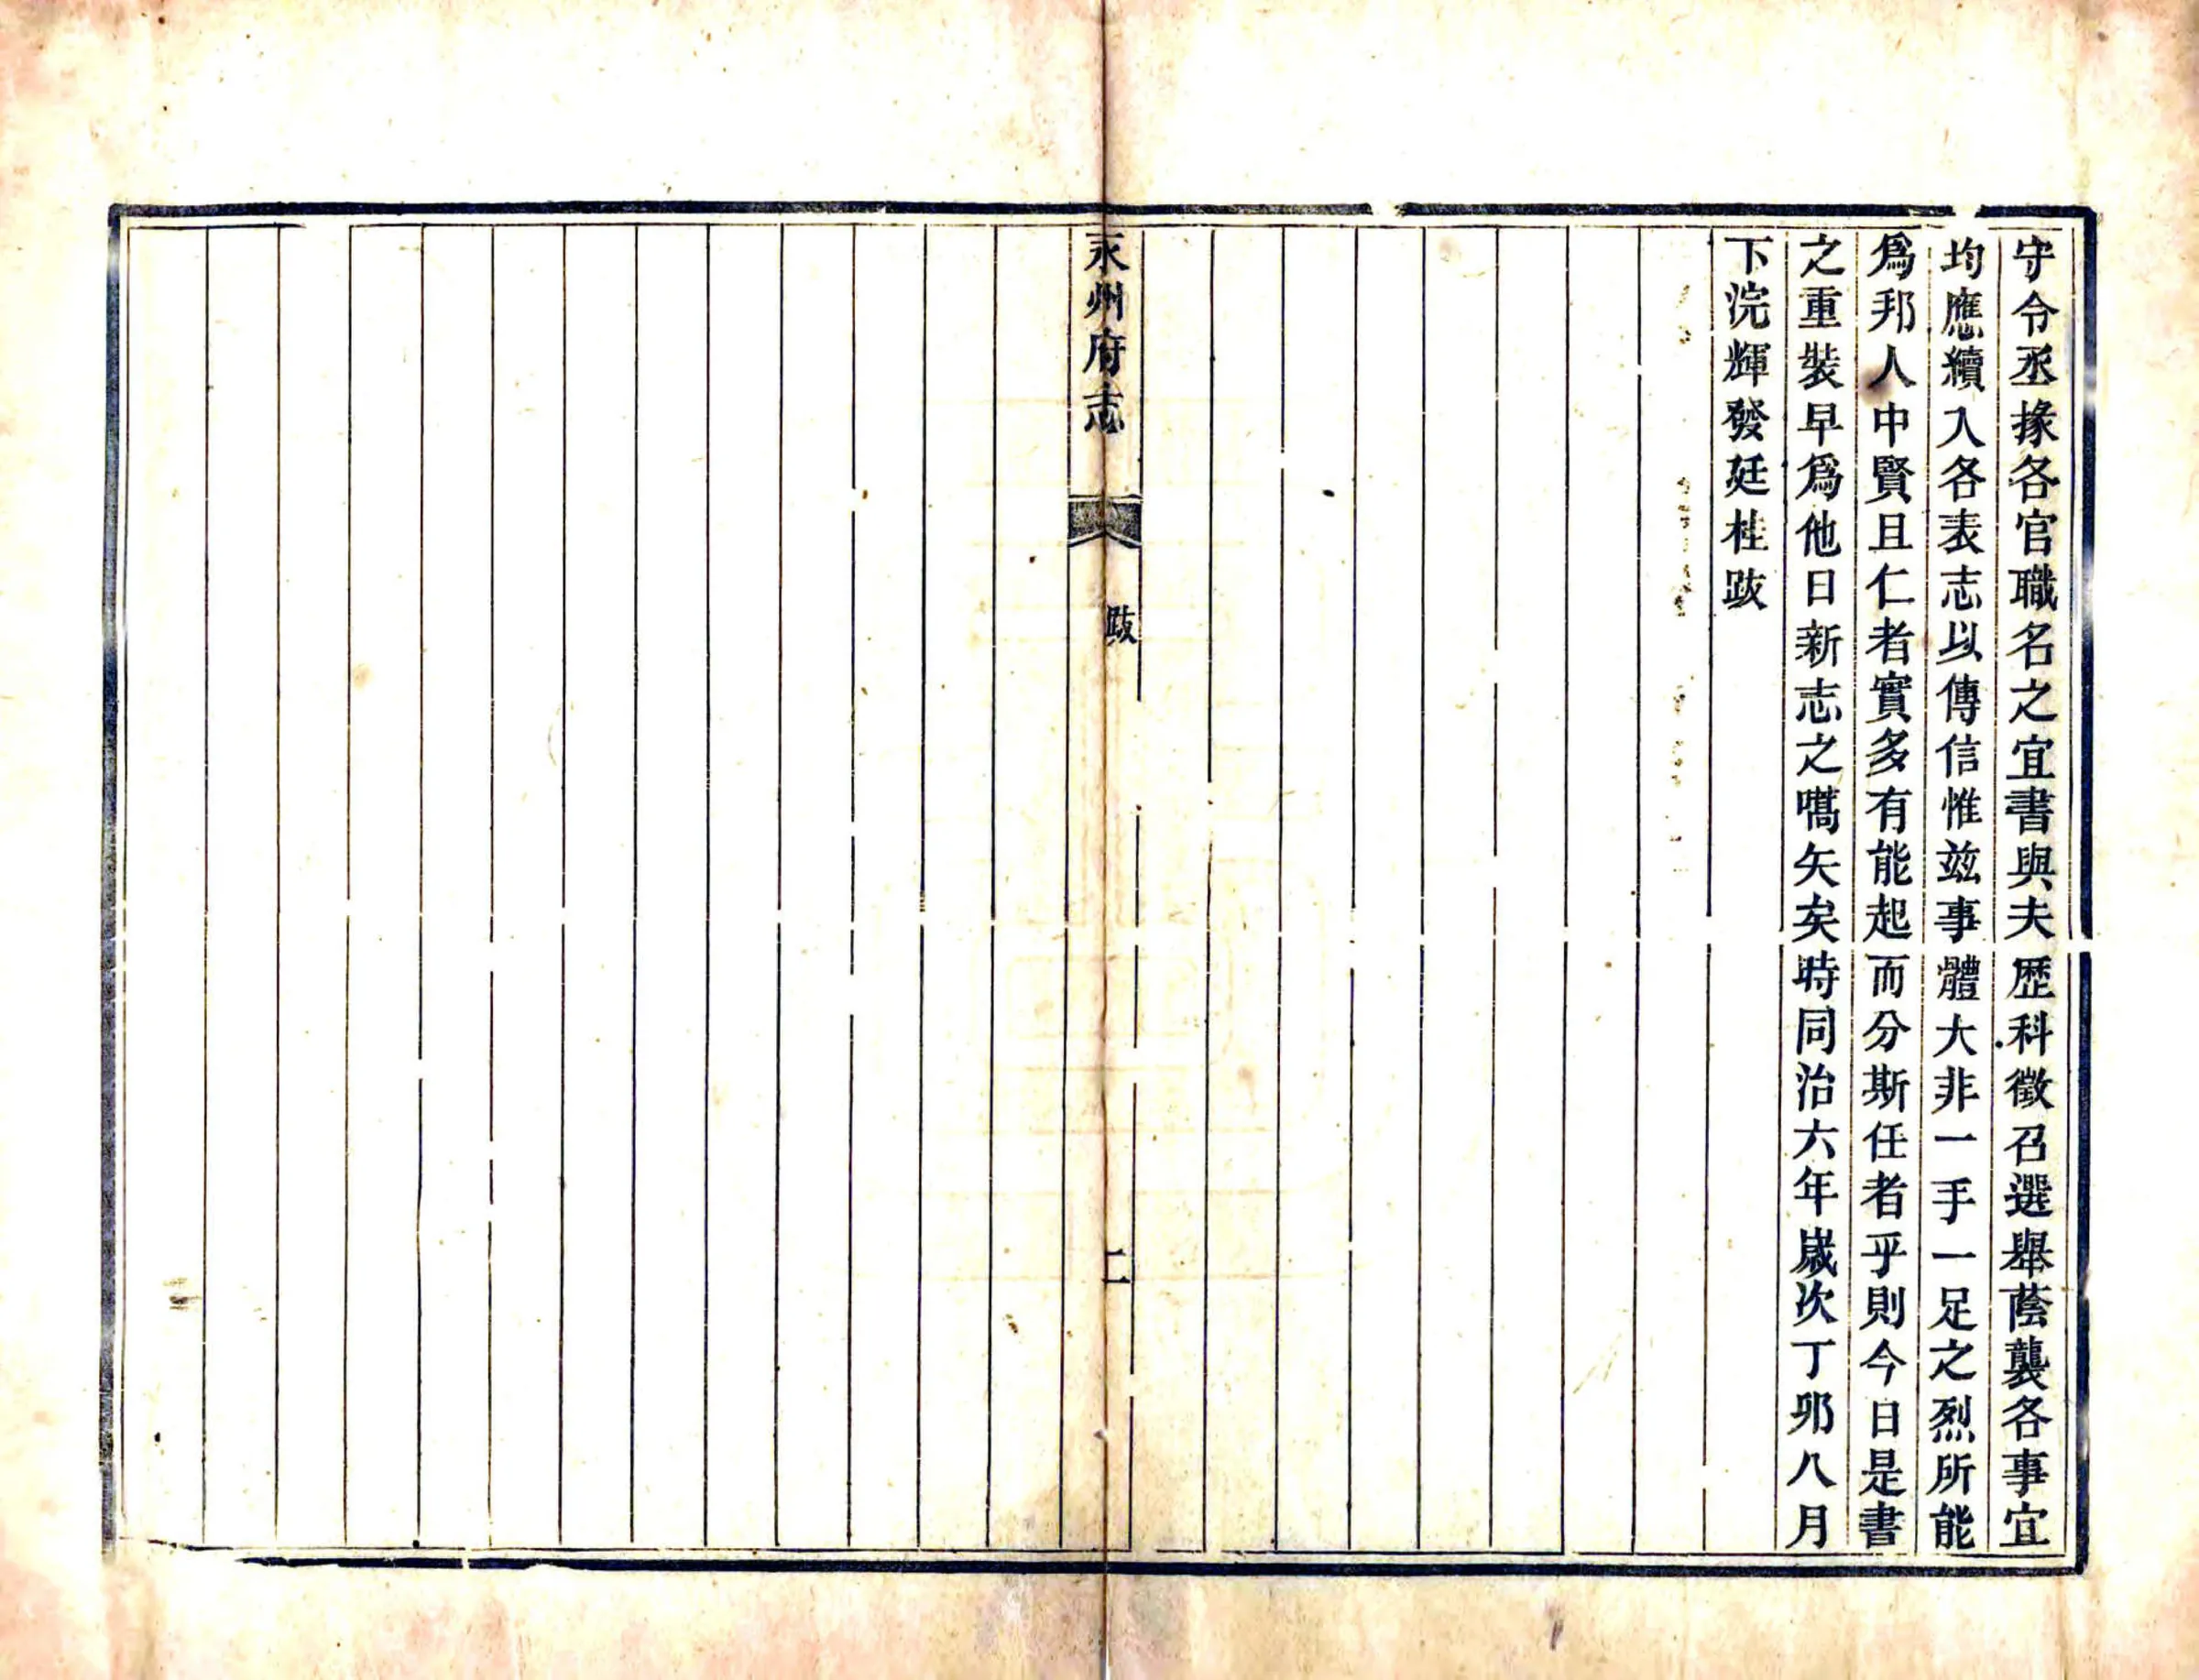 守令丞掾各官職名之宜書與夫歷科徵召選舉蔭襲各事宜
均應續入各表志以傳信惟茲事體大非一手一足之烈所能
爲邦人中賢且仁者實多有能起而分斯任者乎則今日是書
之重裝早爲他日新志之嚆矢矣時同治六年歲次丁卯八月
下浣輝發廷桂跋
永州府志
跋
二